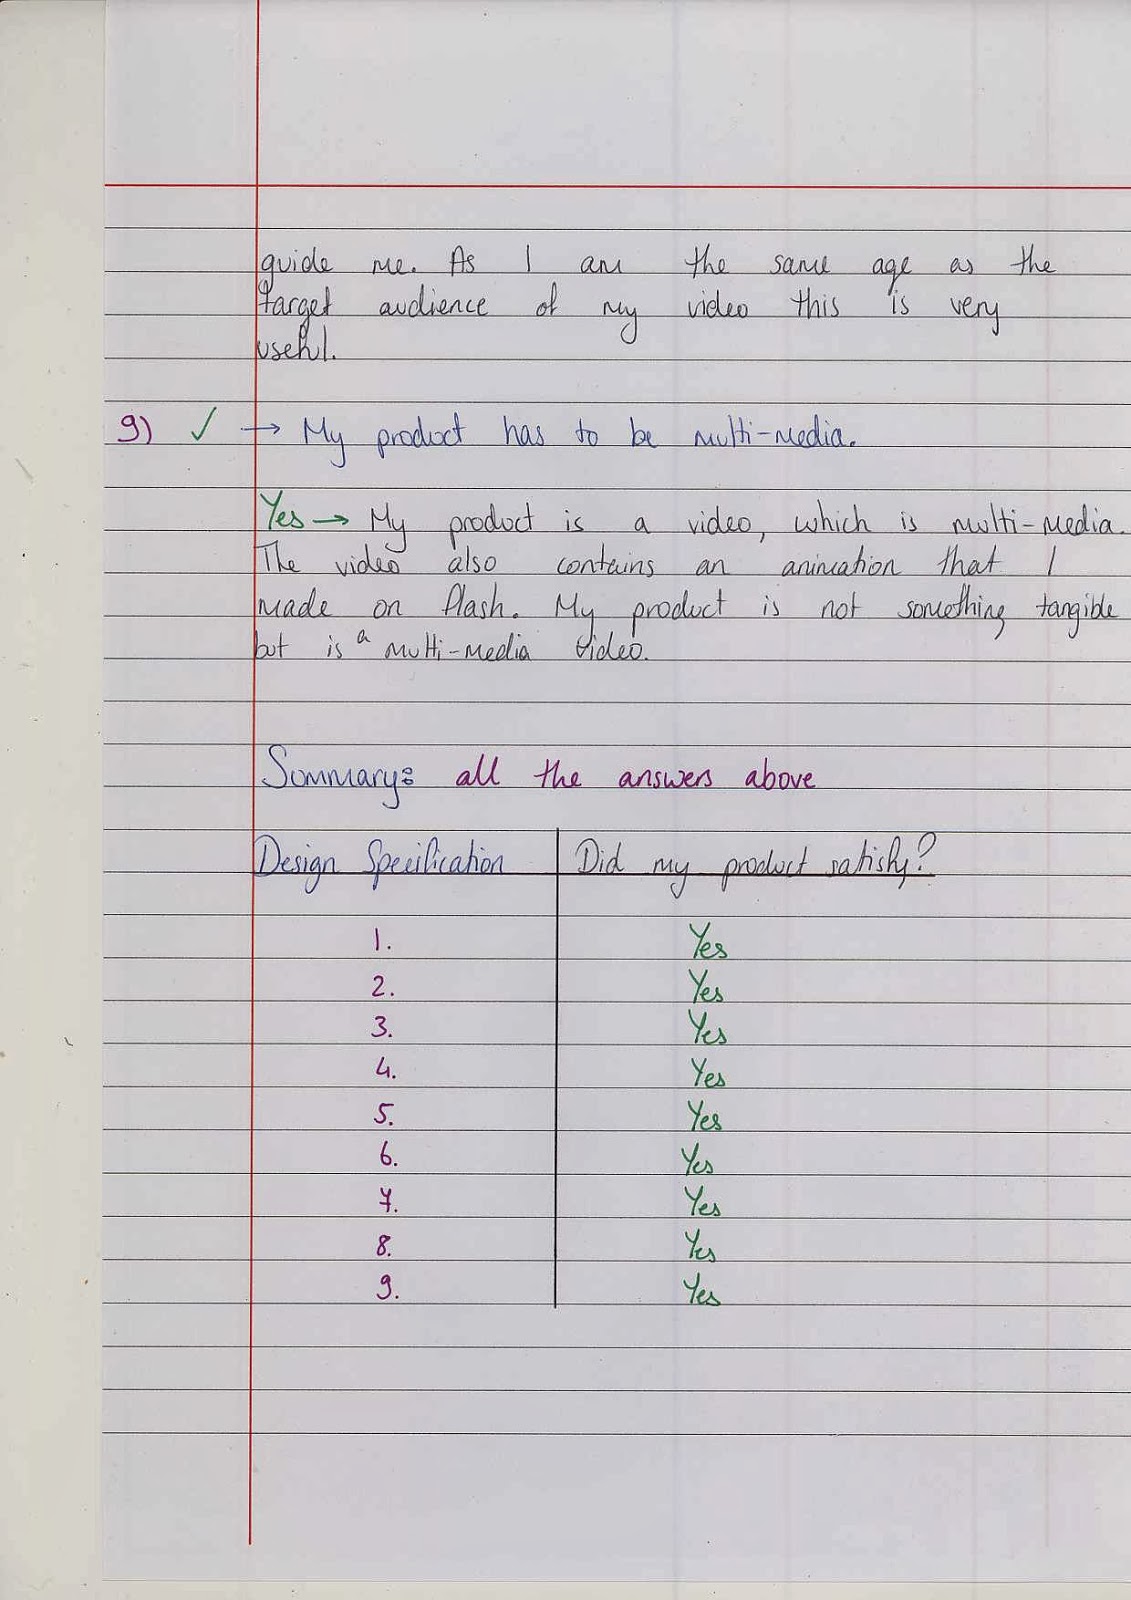 guide me. As I am the same age as the
target audience of my video this is very
useful.
9) ✓ → My product has to be multi-media.
Yes → My product is a video, which is multi-media.
The video also contains an animation that I
made on flash. My product is not something tangible
but is a multi-media video.
Summary: all the answers above
Design Specification | Did my product satisfy?
1. Yes
2. Yes
3. Yes
4. Yes
5. Yes
6. Yes
7. Yes
8. Yes
9. Yes